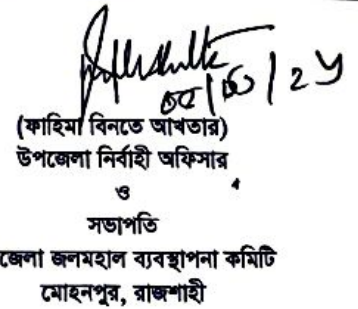 (ফাহিমা বিনতে আখতার)
উপজেলা নির্বাহী অফিসার
ও
সভাপতি
জেলা জলমহাল ব্যবস্থাপনা কমিটি
মোহনপুর, রাজশাহী